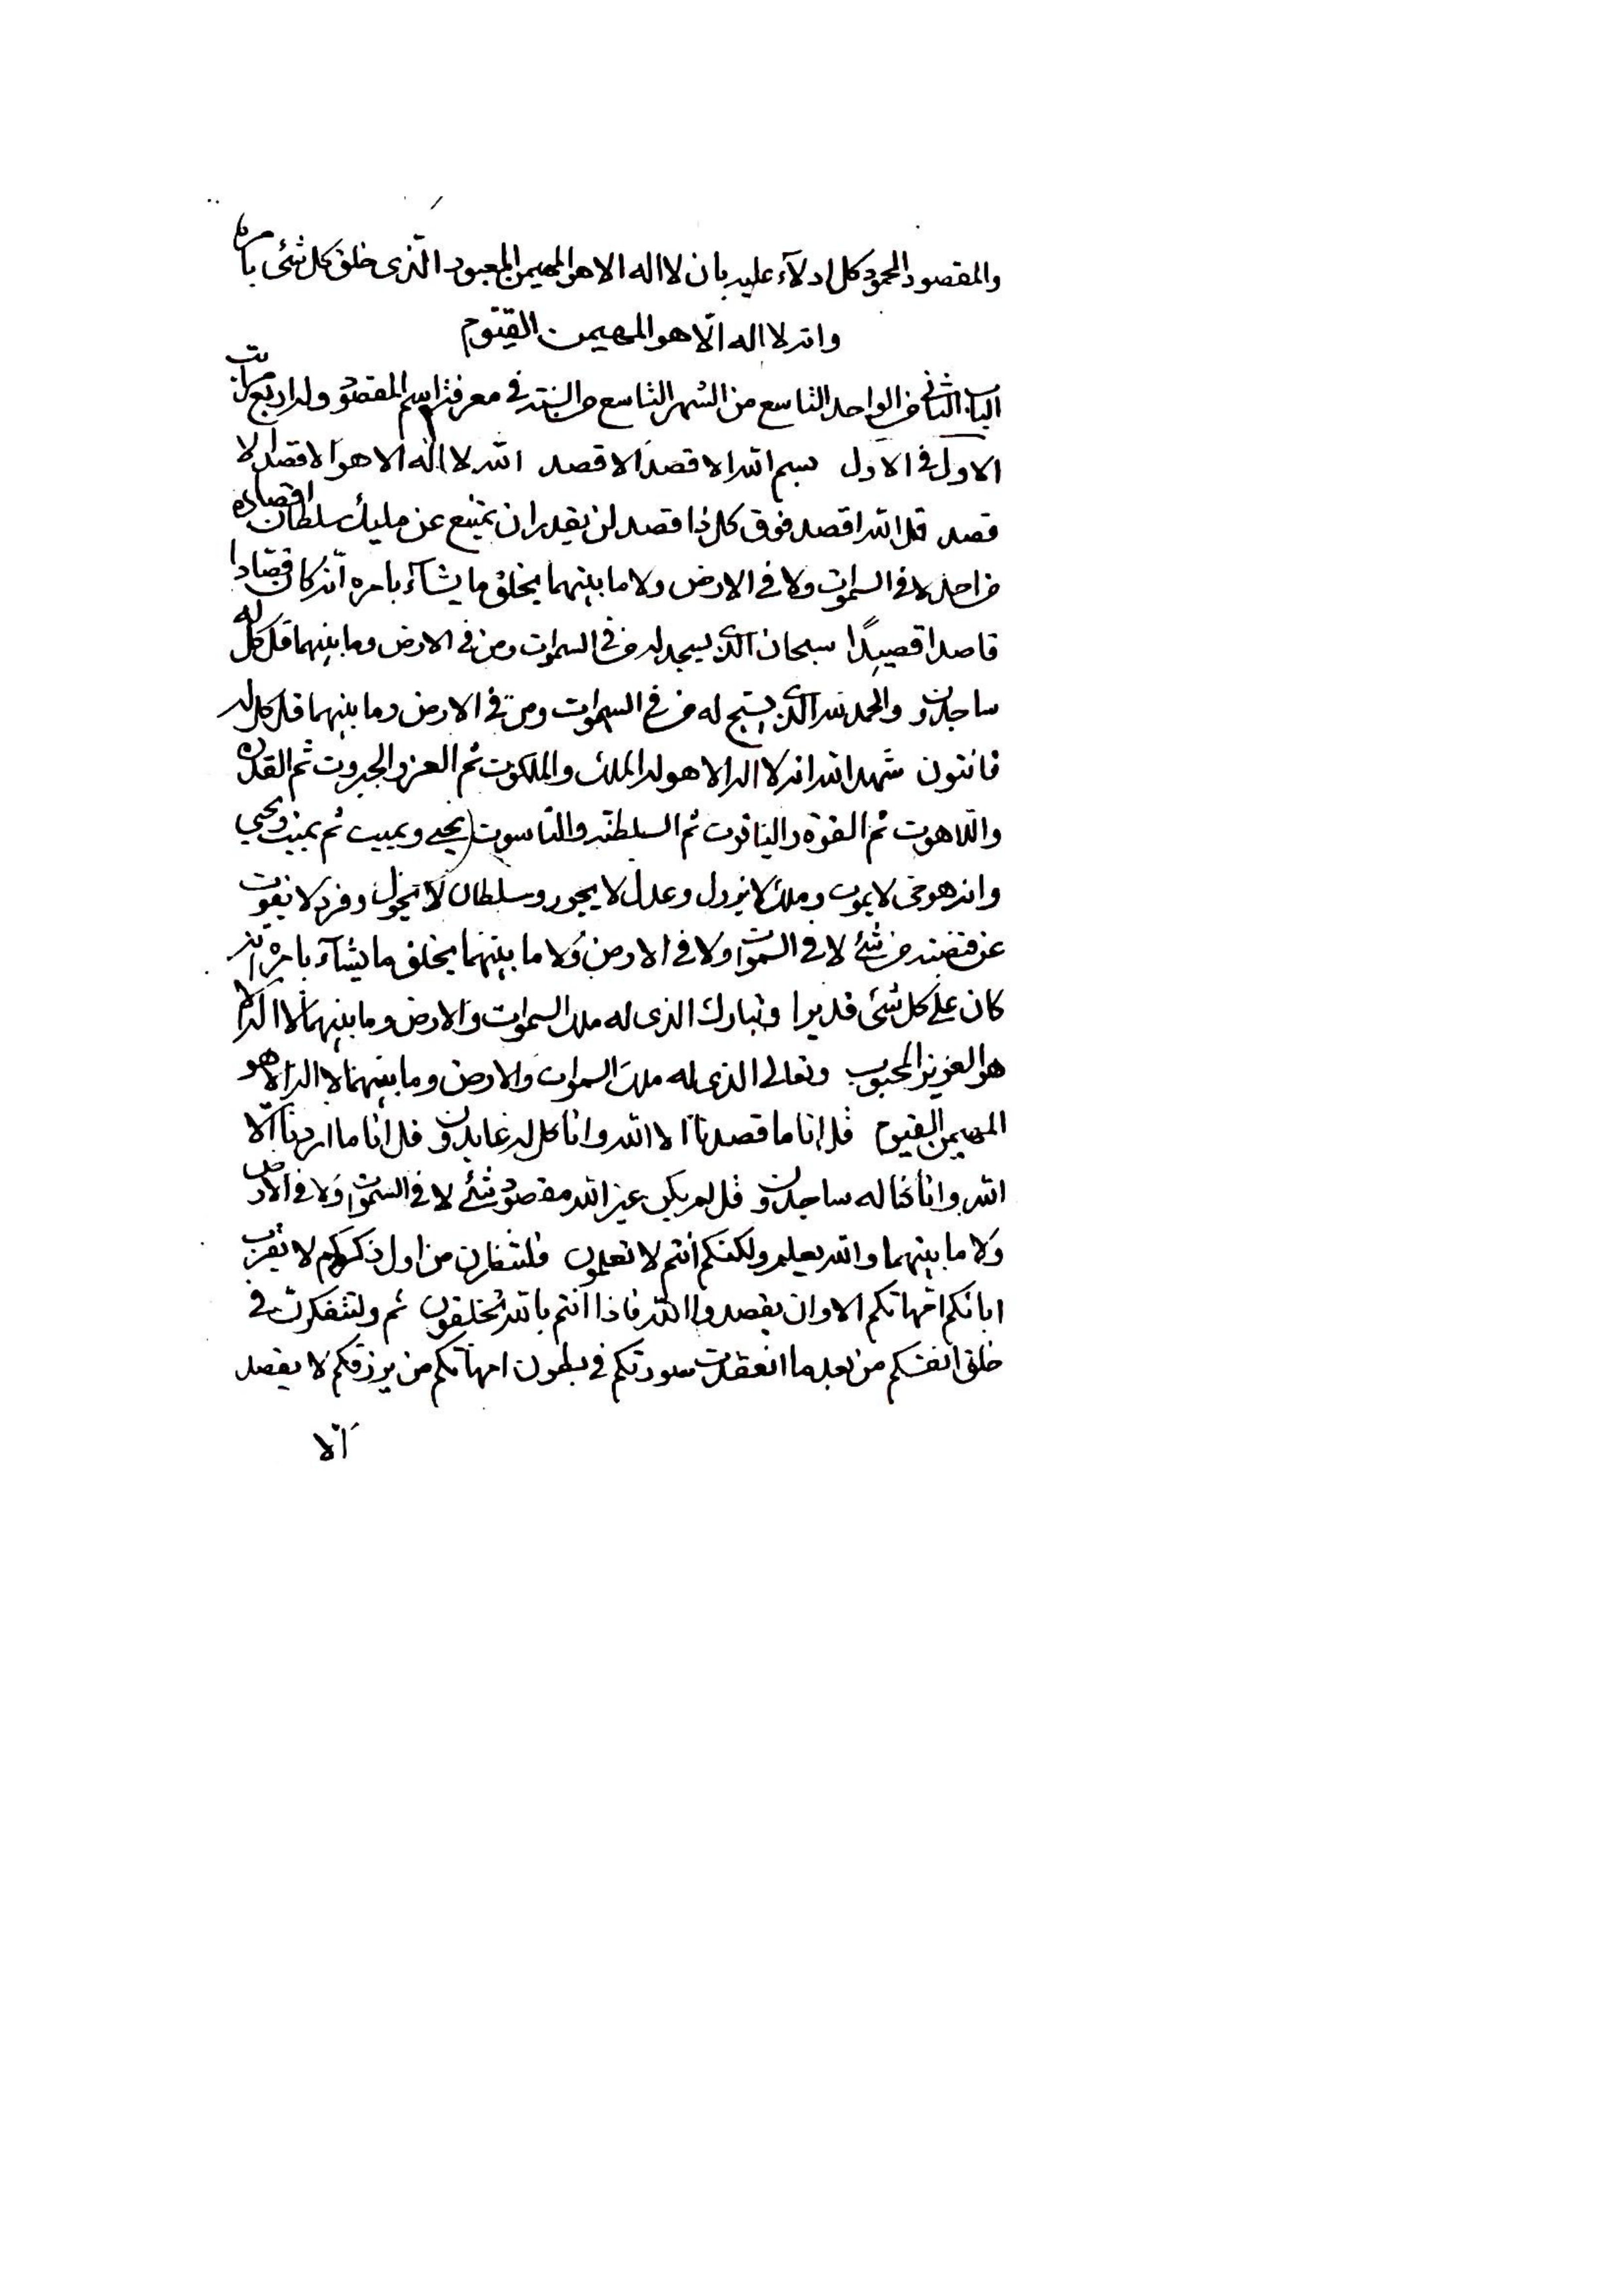 والمقصود المحمود كل ادلآء عليه بان لا اله الا هو المهيمن المعبود الّذى خلق كل شئ بامره
وانه لا اله الّا هو المهيمن القيّوم
الباب الثانى من الواحد التاسع من الشهر التاسع من السنة فى معرفة اسم المقصود وله اربع مراتب
الاول فى الاول بسم الله الاقصد الاقصد الله لا اله الا هو الاقصد الا
قصد قل الله اقصد فوق كل ذا قصد لن يقدر ان يمتنع عن مليك سلطان اقصاده
من احد لا فى السموات ولا فى الارض ولا ما بينهما يخلق ما يشآء بامره انّه كان قصّادا
قاصدا قصيدًا سبحان الذى يسجد له من فى السموات ومن فى الارض وما بينهما قل كل له
ساجدون والحمد لله الذى يسبح له من فى السموات ومن فى الارض وما بينهما قل كل له
قانتون شهد الله انه لا اله الا هو له الملك والملكوت ثم العز والجبروت ثم القدرة
واللاهوت ثم القوة والياقوت ثم السلطنة والناسوت يحيى ويميت ثم يميت ويحيي
وانه هو حى لا يموت وملك لا يزول وعدل لا يجور وسلطان لا يحول وفرد لا يفوت
عن قبضته من شئ لا فى السموات ولا فى الارض ولا ما بينهما يخلق ما يشآء بامره انه
كان على كل شئ قديرا وتبارك الذى له ملك السموات والارض وما بينهما لا اله الا
هو العزيز المحبوب وتعالى الذى له ملك السموات والارض وما بينهما لا اله الا هو
المهيمن القيوم قل انا ما قصدنا الا الله وانا كل له عابدون قل انا ما اردنا الّا
الله وانا كنا له ساجدون قل لم يكن غير الله مقصود شئ لا فى السموات ولا فى الارض
ولا ما بينهما والله يعلم ولكنكم انتم لا تعلمون فلتنظرن من اول ذكركم لا يقرب
ابائكم امّهاتكم الا وان يقصدوا الله فاذا انتم بالله تخلقون ثم ولتتفكرن فى
خلق انفسكم من بعد ما انعقدت سورتكم فى بطون امهاتكم من يرزقكم لا يقصد
الّا